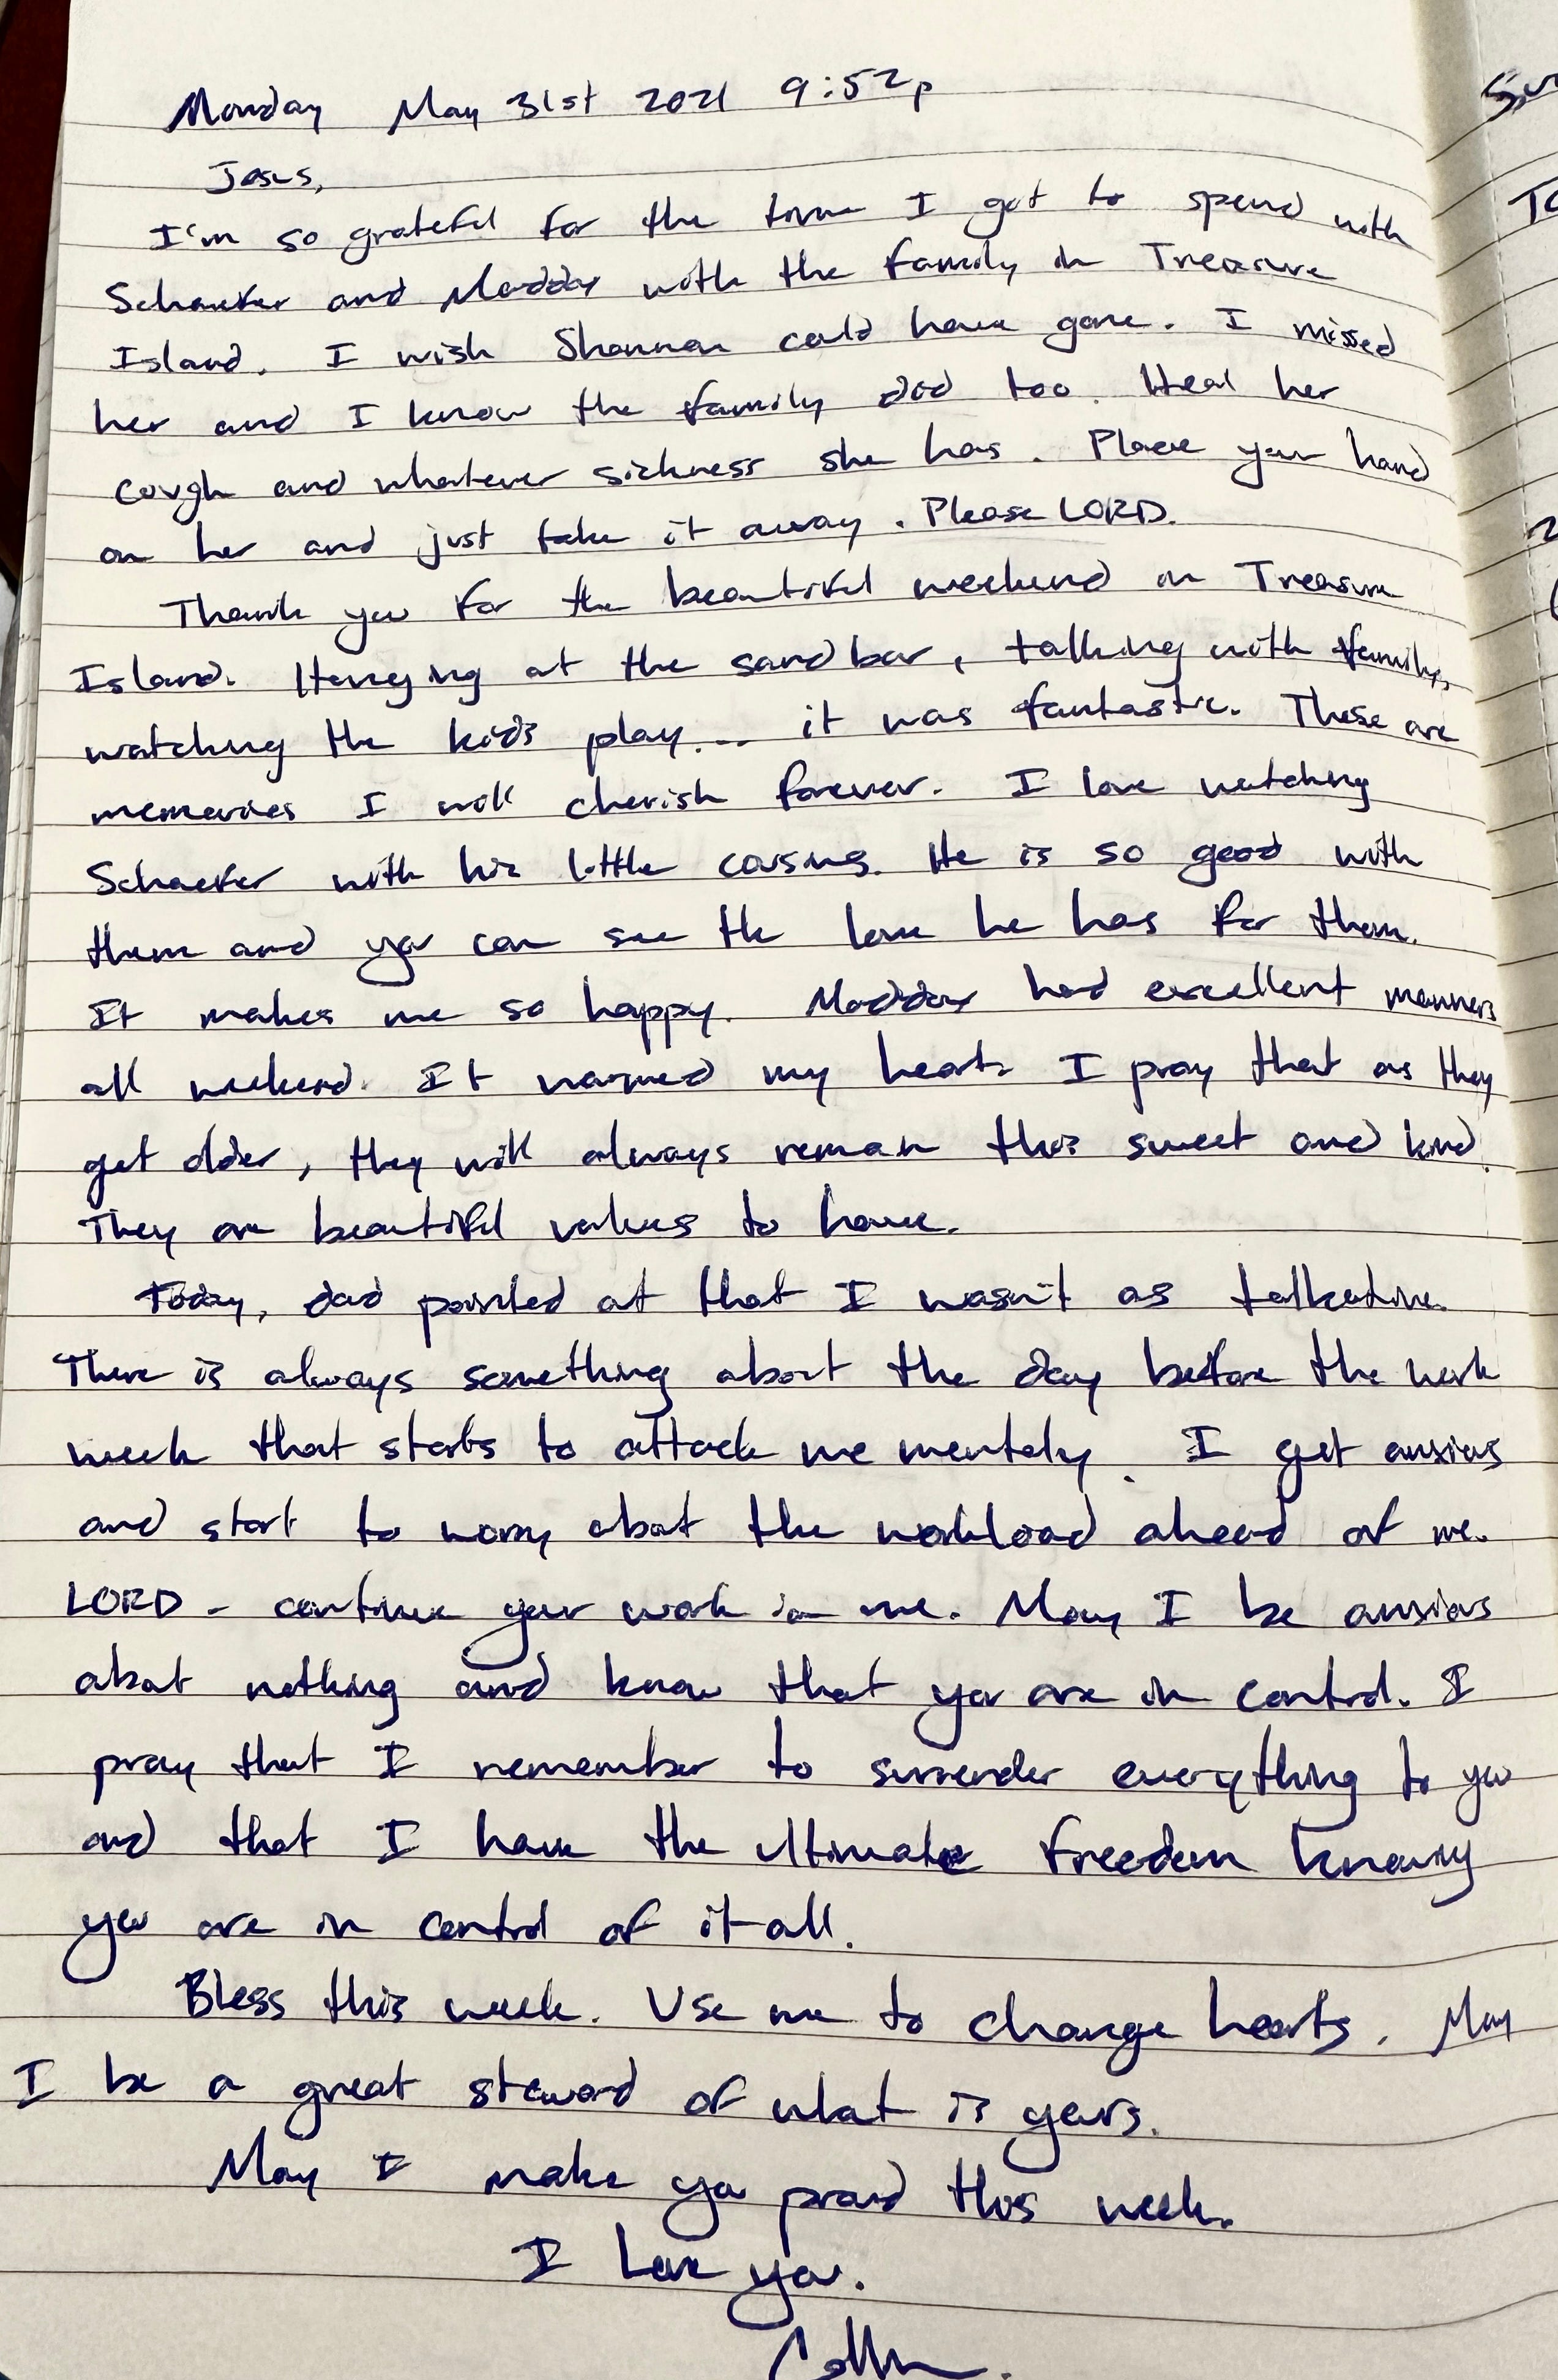 Monday May 31st 2021 9:52p
Jesus,
I'm so grateful for the time I got to spend with
Schaefer and Maddox with the family in Treasure
Island. I wish Shannon could have gone. I missed
her and I know the family did too. Heal her
cough and whatever sickness she has. Place your hand
on her and just take it away. Please LORD.
Thank you for the beautiful weekend on Treasure
Island. Hanging at the sandbar, talking with family,
watching the kids play... it was fantastic. These are
memories I will cherish forever. I love watching
Schaefer with his little cousins. He is so good with
them and you can see the love he has for them.
It makes me so happy. Maddox had excellent manners
all weekend. It warmed my heart. I pray that as they
get older, they will always remain this sweet and kind.
They are beautiful values to have.
Today, dad pointed out that I wasn't as talkative.
There is always something about the day before the work
week that starts to attack me mentaly. I get anxious
and start to worry about the workload ahead of me.
LORD - continue your work in me. May I be anxious
about nothing and know that you are in control. I
pray that I remember to surrender everything to you
and that I have the ultimate freedom knowing
you are in control of it all.
Bless this week. Use me to change hearts. May
I be a great steward of what is yours.
May I make you proud this week.
I Love you.